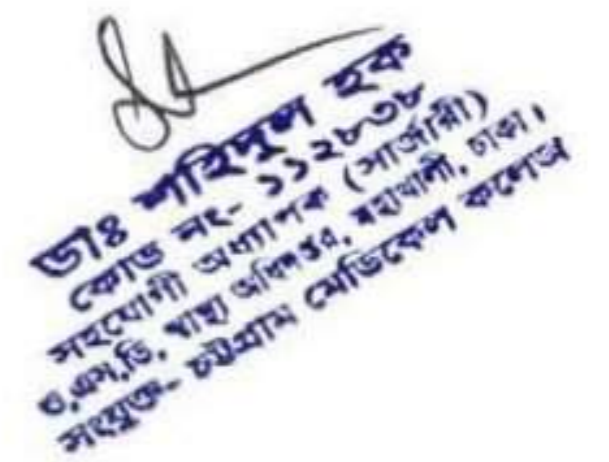 ডাঃ শহিদুল হক
কোড নং- ১১২৮৩৮
সহযোগী অধ্যাপক (সার্জারী)
ও,এস,ডি, স্বাস্থ্য অধিদপ্তর, মহাখালী, ঢাকা।
সংযুক্ত- চট্টগ্রাম মেডিকেল কলেজ